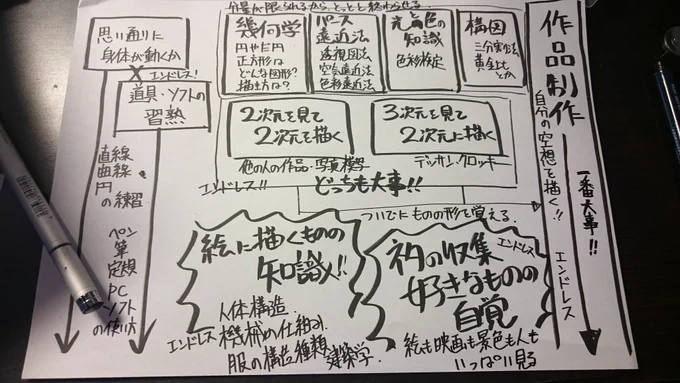 分量が限られるから、とっとと終わらせる
思い通りに
身体が動くか
エンドレス!
道具・ソフトの
習熟
直線
曲線
円
の練習
ペン
筆
定規
PC
ソフト
の使い方
幾何学
円や楕円
正方形は
どんな図形?
描き方は?
パース
遠近法
透視図法
空気遠近法
色彩遠近法
光と色の
知識
色彩検定
構図
三分割法
黄金比
とか
2次元を見て
2次元を描く
他の人の作品・写真模写
3次元を見て
2次元に描く
デッサン・クロッキー
エンドレス!!
どっちも大事!!
ついでにものの形を覚える
絵に描くものの
知識!!
人体構造
機械の仕組み
服の構造種類
建築学
エンドレス
ネタの収集
エンドレス
好きなものの
自覚
絵も映画も景色も人も
いっぱい見る
作品制作
自分の空想を描く!!
一番大事!!
エンドレス